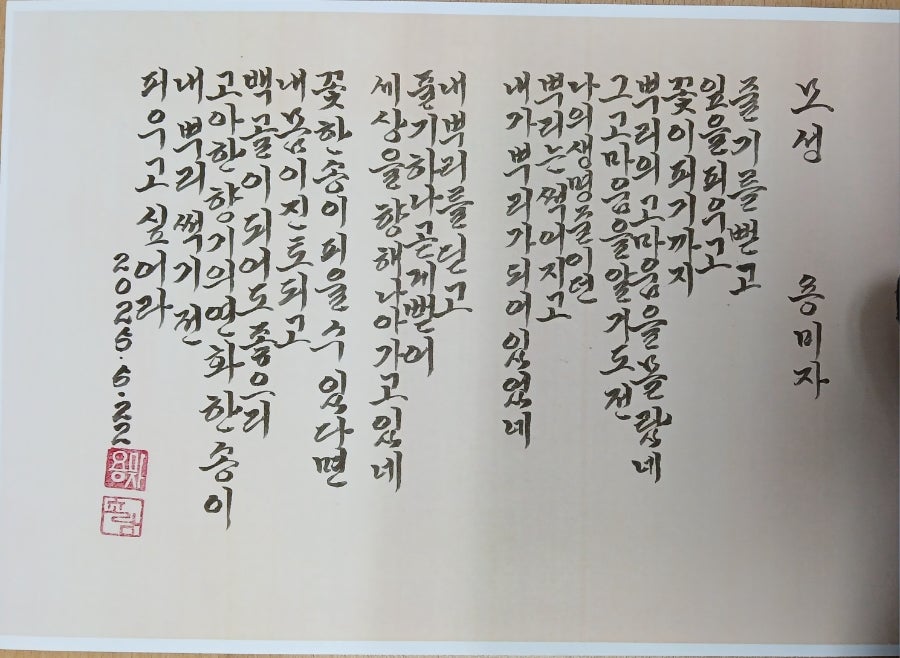 모생
용미자
줄기를 뻗고
잎을 피우고
꽃이 피기까지
뿌리의 고마움을 몰랐네
그 고마움을 알기도 전
나의 생명줄이던
뿌리는 썩어지고
내가 뿌리가 되어 있었네
내 뿌리를 딛고
줄기 하나 곧게 뻗어
세상을 향해 나아가고 있네
꽃 한 송이 피울 수 있다면
내 몸이 진토 되고
백골이 되어도 좋으리
고아한 향기의 연화 한 송이
내 뿌리 썩기 전
피우고 싶어라
2025.5.22
용미자